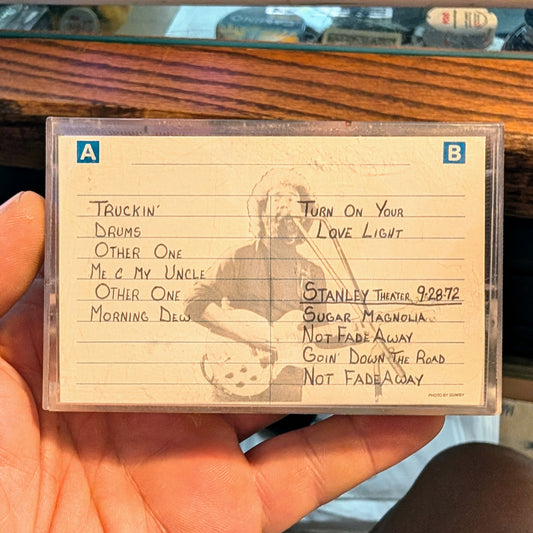 A
B
TRUCKIN'
DRUMS
OTHER ONE
ME & MY UNCLE
OTHER ONE
MORNING DEW
TURN ON YOUR
LOVE LIGHT
STANLEY THEATER 9-28-72
SUGAR MAGNOLIA
NOT FADE AWAY
GOIN' DOWN THE ROAD
NOT FADE AWAY
PHOTO BY GUMBY